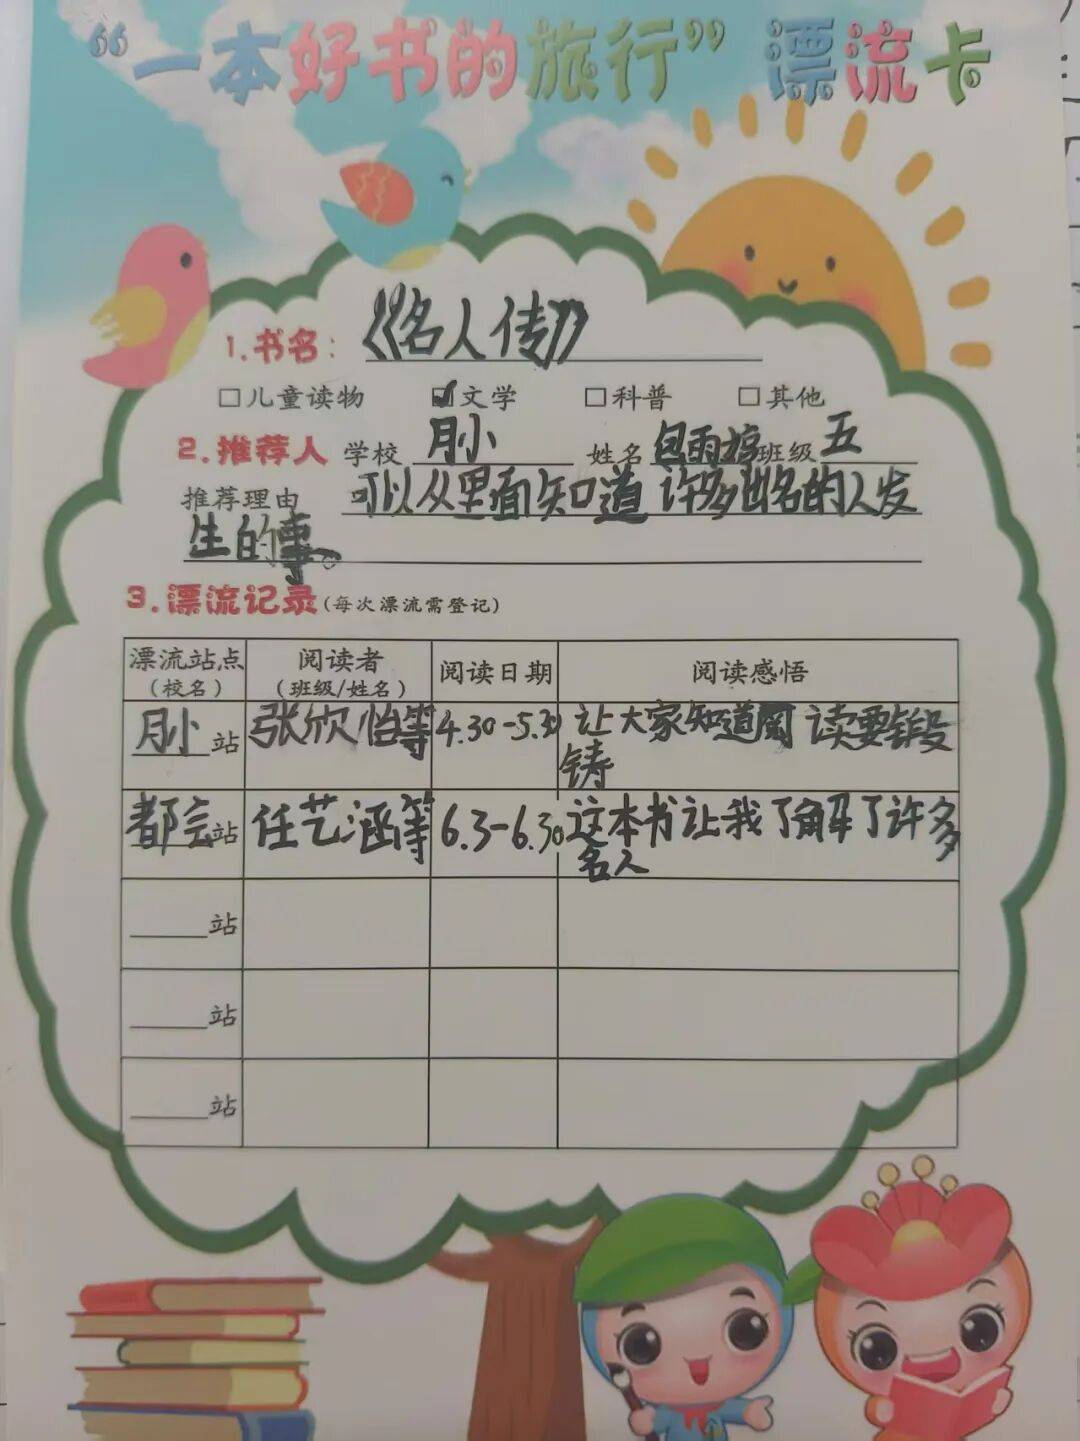 “一本好书的旅行” 漂流卡
1.书名：《名人传》
□儿童读物 ☑文学 □科普 □其他
2.推荐人 学校 月小 姓名 包雨婷 班级 五
推荐理由 可以从里面知道许多出名的人发
生的事。
3.漂流记录(每次漂流需登记)
漂流站点 阅读者 阅读日期 阅读感悟
（校名） （班级/姓名）
月小站 张欣怡等 4.30-5.30 让大家知道阅读要锻
铸
都会站 任艺涵等 6.3-6.30 这本书让我了解了许多
名人
站
站
站